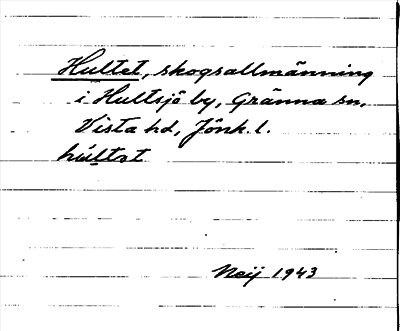 Hultet, skogsallmänning
i Hultsjö by, Gränna sn,
Vista hd, Jönk. l.
húltət
Neij 1943